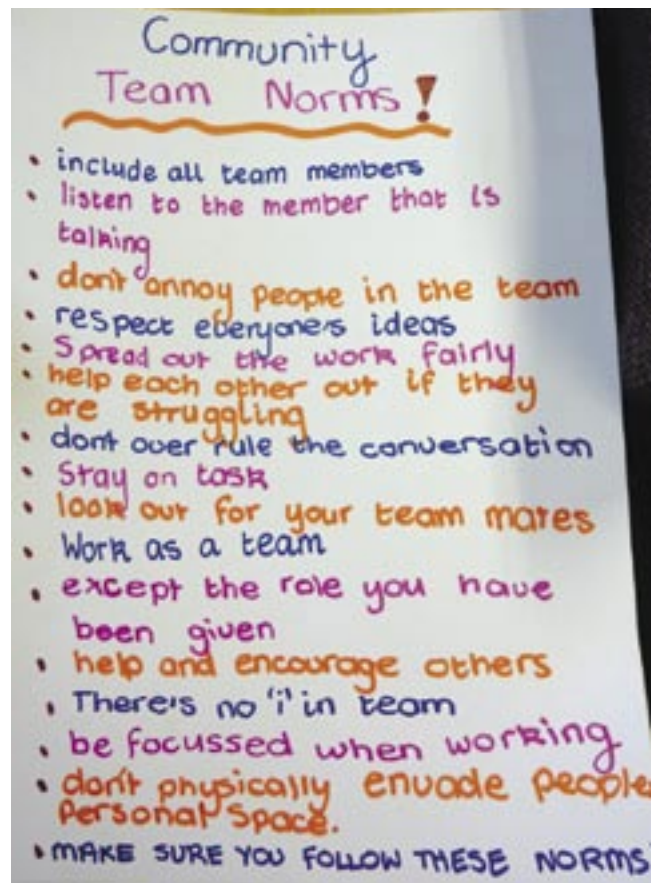 Community
Team Norms!
• include all team members
• listen to the member that is
talking
• don't annoy people in the team
• respect everyone's ideas
• Spread out the work fairly
• help each other out if they
are struggling
• dont over rule the conversation
• Stay on task
• look out for your team mates
• Work as a team
• except the role you have
been given
• help and encourage others
• There's no 'i' in team
• be focussed when working
• don't physically envade people
personal space.
• MAKE SURE YOU FOLLOW THESE NORMS